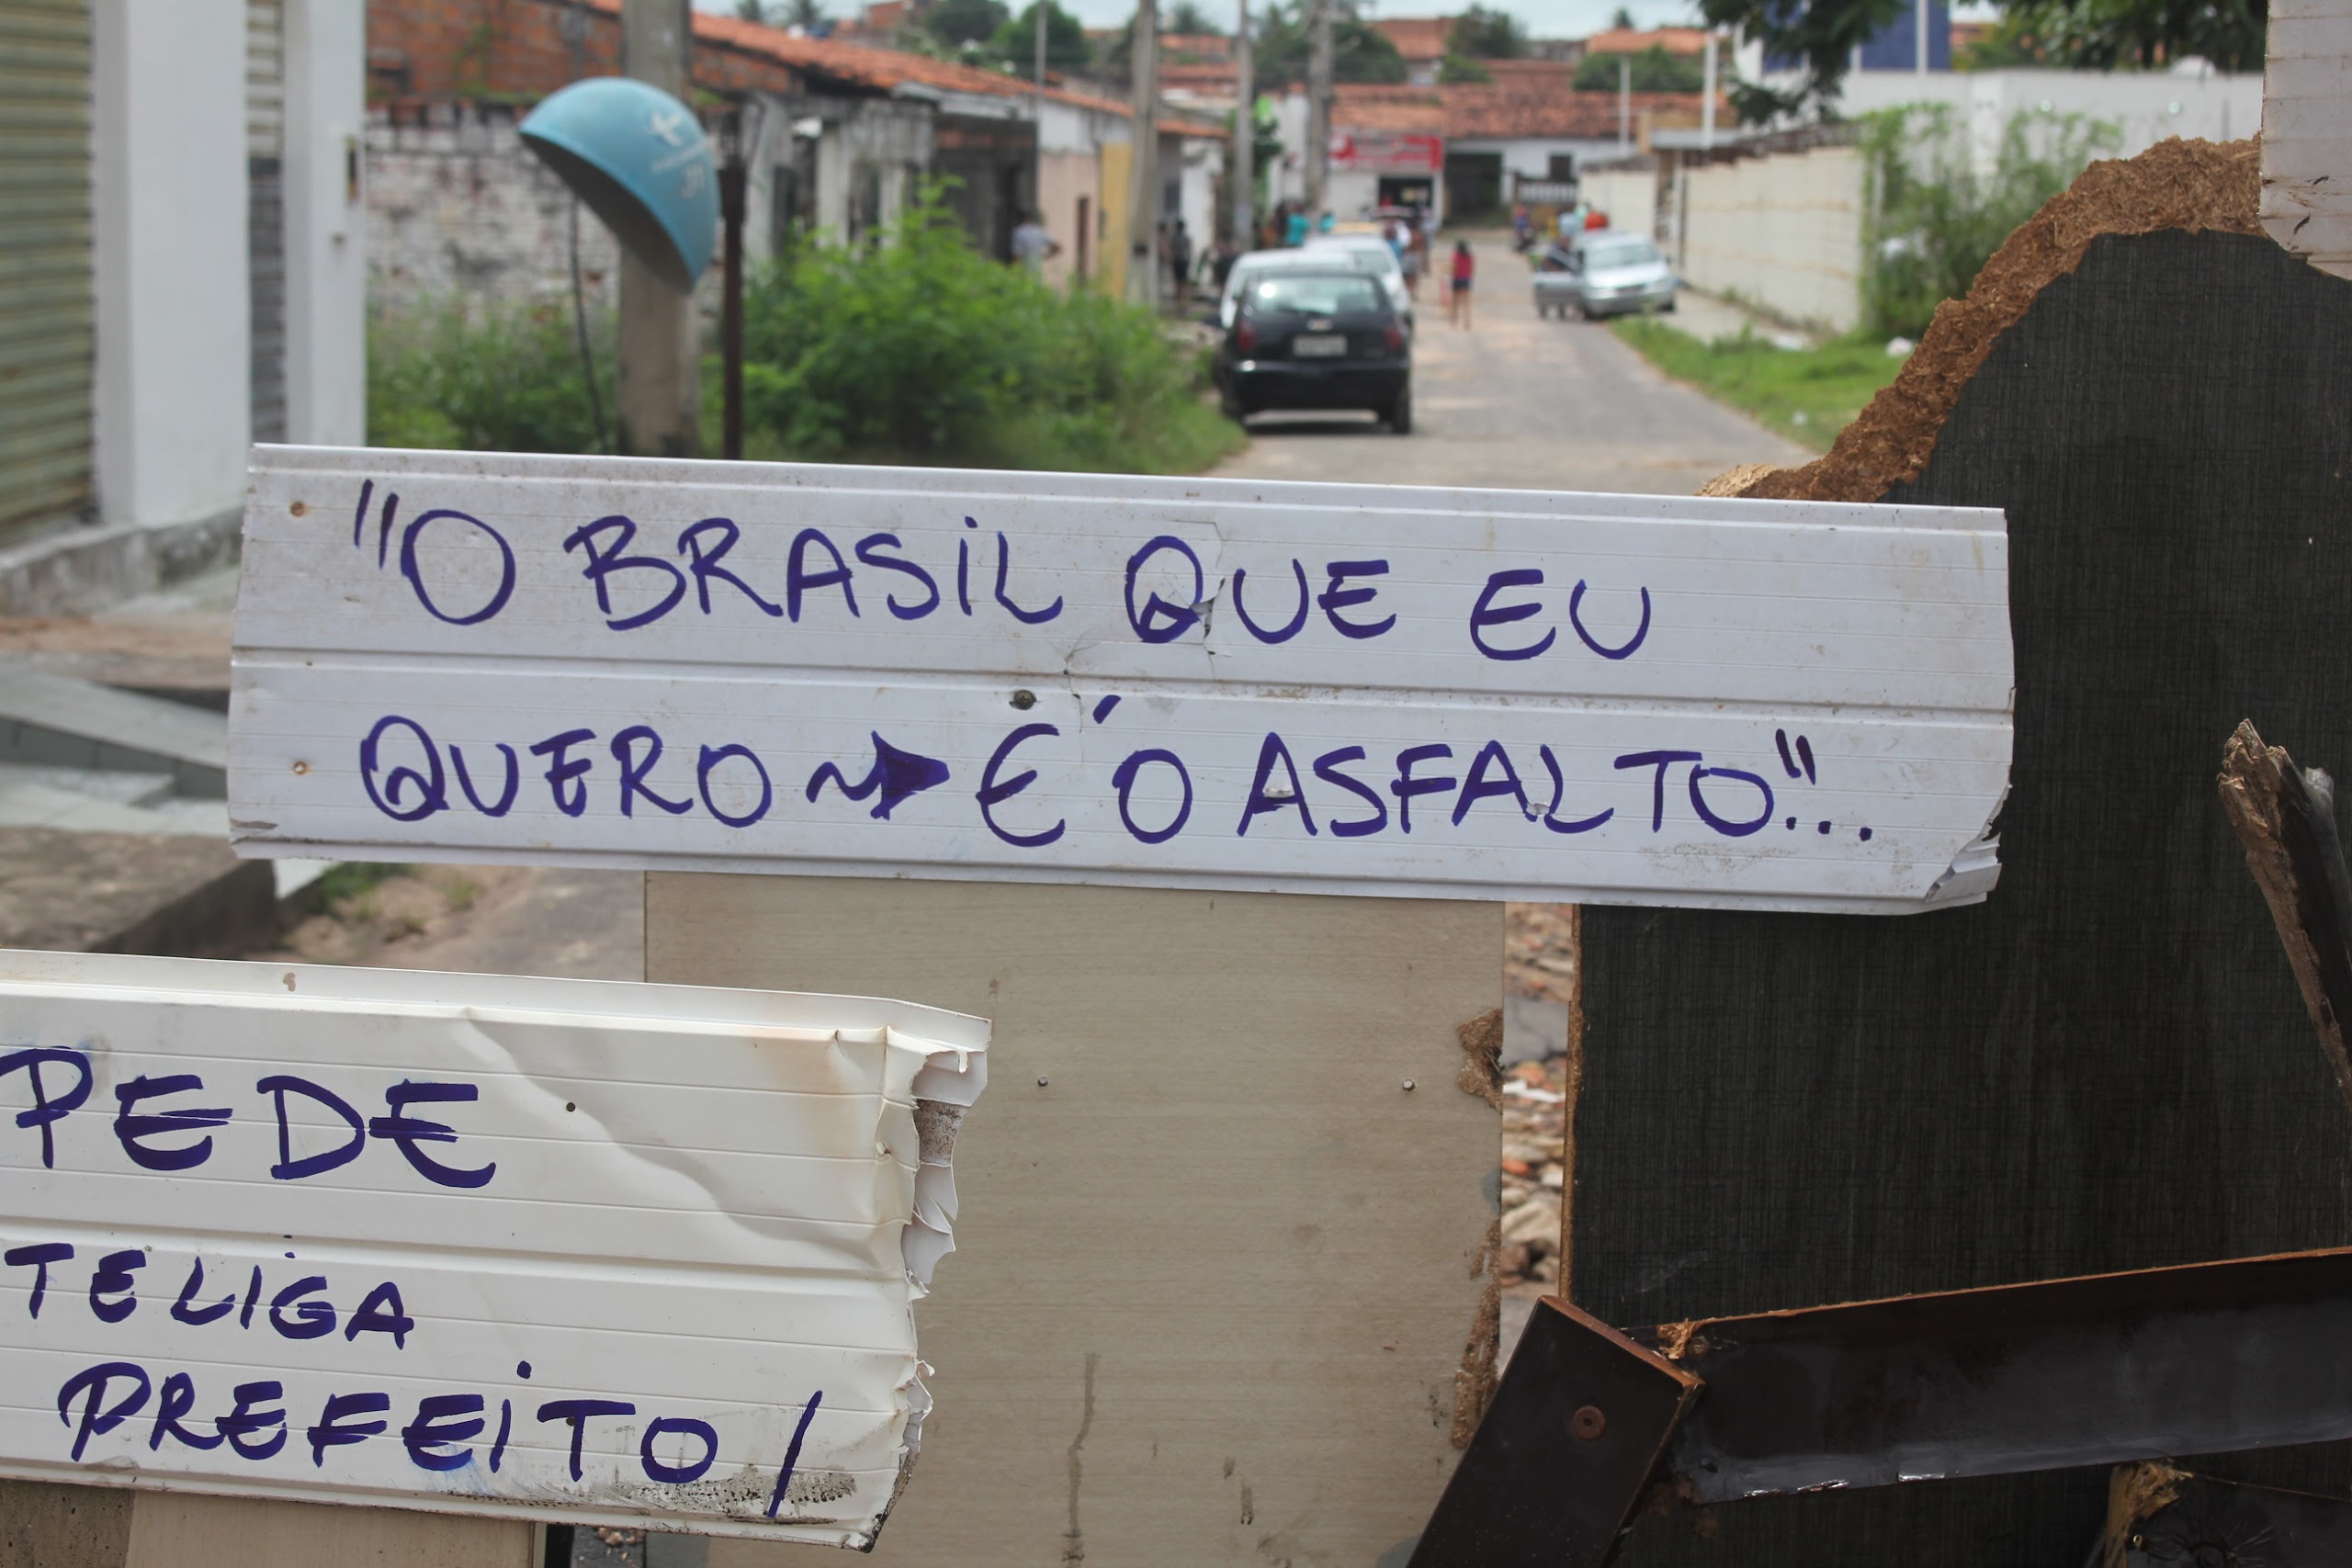 "O BRASIL QUE EU
QUERO É O ASFALTO"...
PEDE
TE LIGA
PREFEITO!